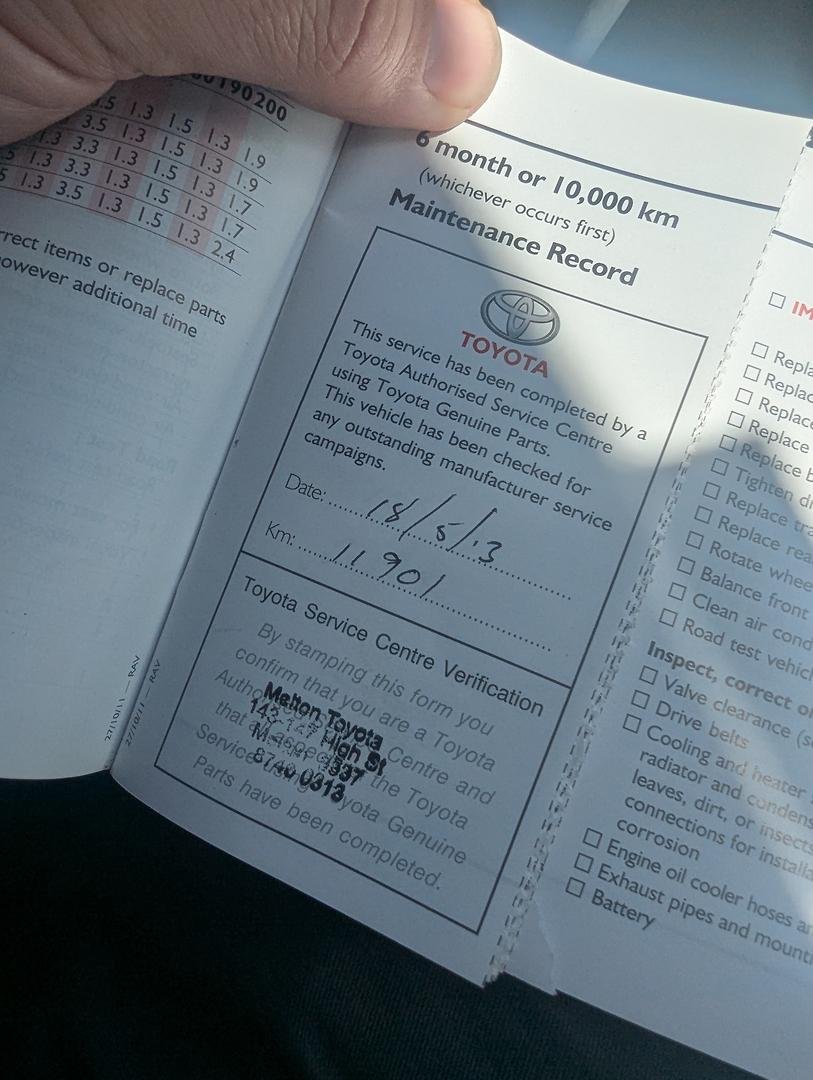 190200
3.5 1.3 1.5 1.3 1.9
1.3 3.5 1.3 1.5 1.3 1.9
1.3 3.3 1.3 1.5 1.3 1.7
1.3 3.3 1.3 1.5 1.3 1.7
1.3 3.5 1.3 1.5 1.3 2.4
rrect items or replace parts
owever additional time
27/10/11 — RAV
27/10/11 — RAV
6 month or 10,000 km
(whichever occurs first)
Maintenance Record
TOYOTA
This service has been completed by a
Toyota Authorised Service Centre
using Toyota Genuine Parts.
This vehicle has been checked for
any outstanding manufacturer service
campaigns.
Date: 18/5/13
Km: 11901
Toyota Service Centre Verification
By stamping this form you
confirm that you are a Toyota
Centre and
the Toyota
Service Toyota Genuine
Parts have been completed.
Melton Toyota
High St
8746 0313
IM
Repla
Replac
Replace
Replace
Replace b
Tighten dr
Replace tra
Replace rea
Rotate whee
Balance front
Clean air cond
Road test vehicl
Inspect, correct o
Valve clearance (s
Drive belts
Cooling and heater
radiator and condens
leaves, dirt, or insects
connections for installa
corrosion
Engine oil cooler hoses an
Exhaust pipes and mounti
Battery